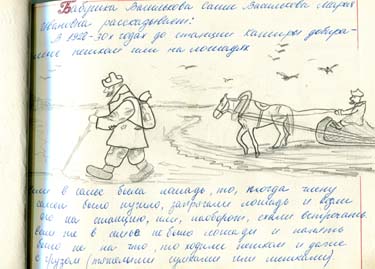 Бабушка Василькова Саши Василькова Мария
Ивановна рассказывает:
В 1920-30х годах до станции Каширы добира-
лись пешком или на лошадях
Если в семье была лошадь, то, когда члену
семьи было нужно, запрягали лошадь и везли
его на станцию, или, наоборот, ехали встречать.
Если же в семье не было лошади и нанять
было не на что, то ходили пешком и даже
с грузом (тяжелыми сумками или мешками).